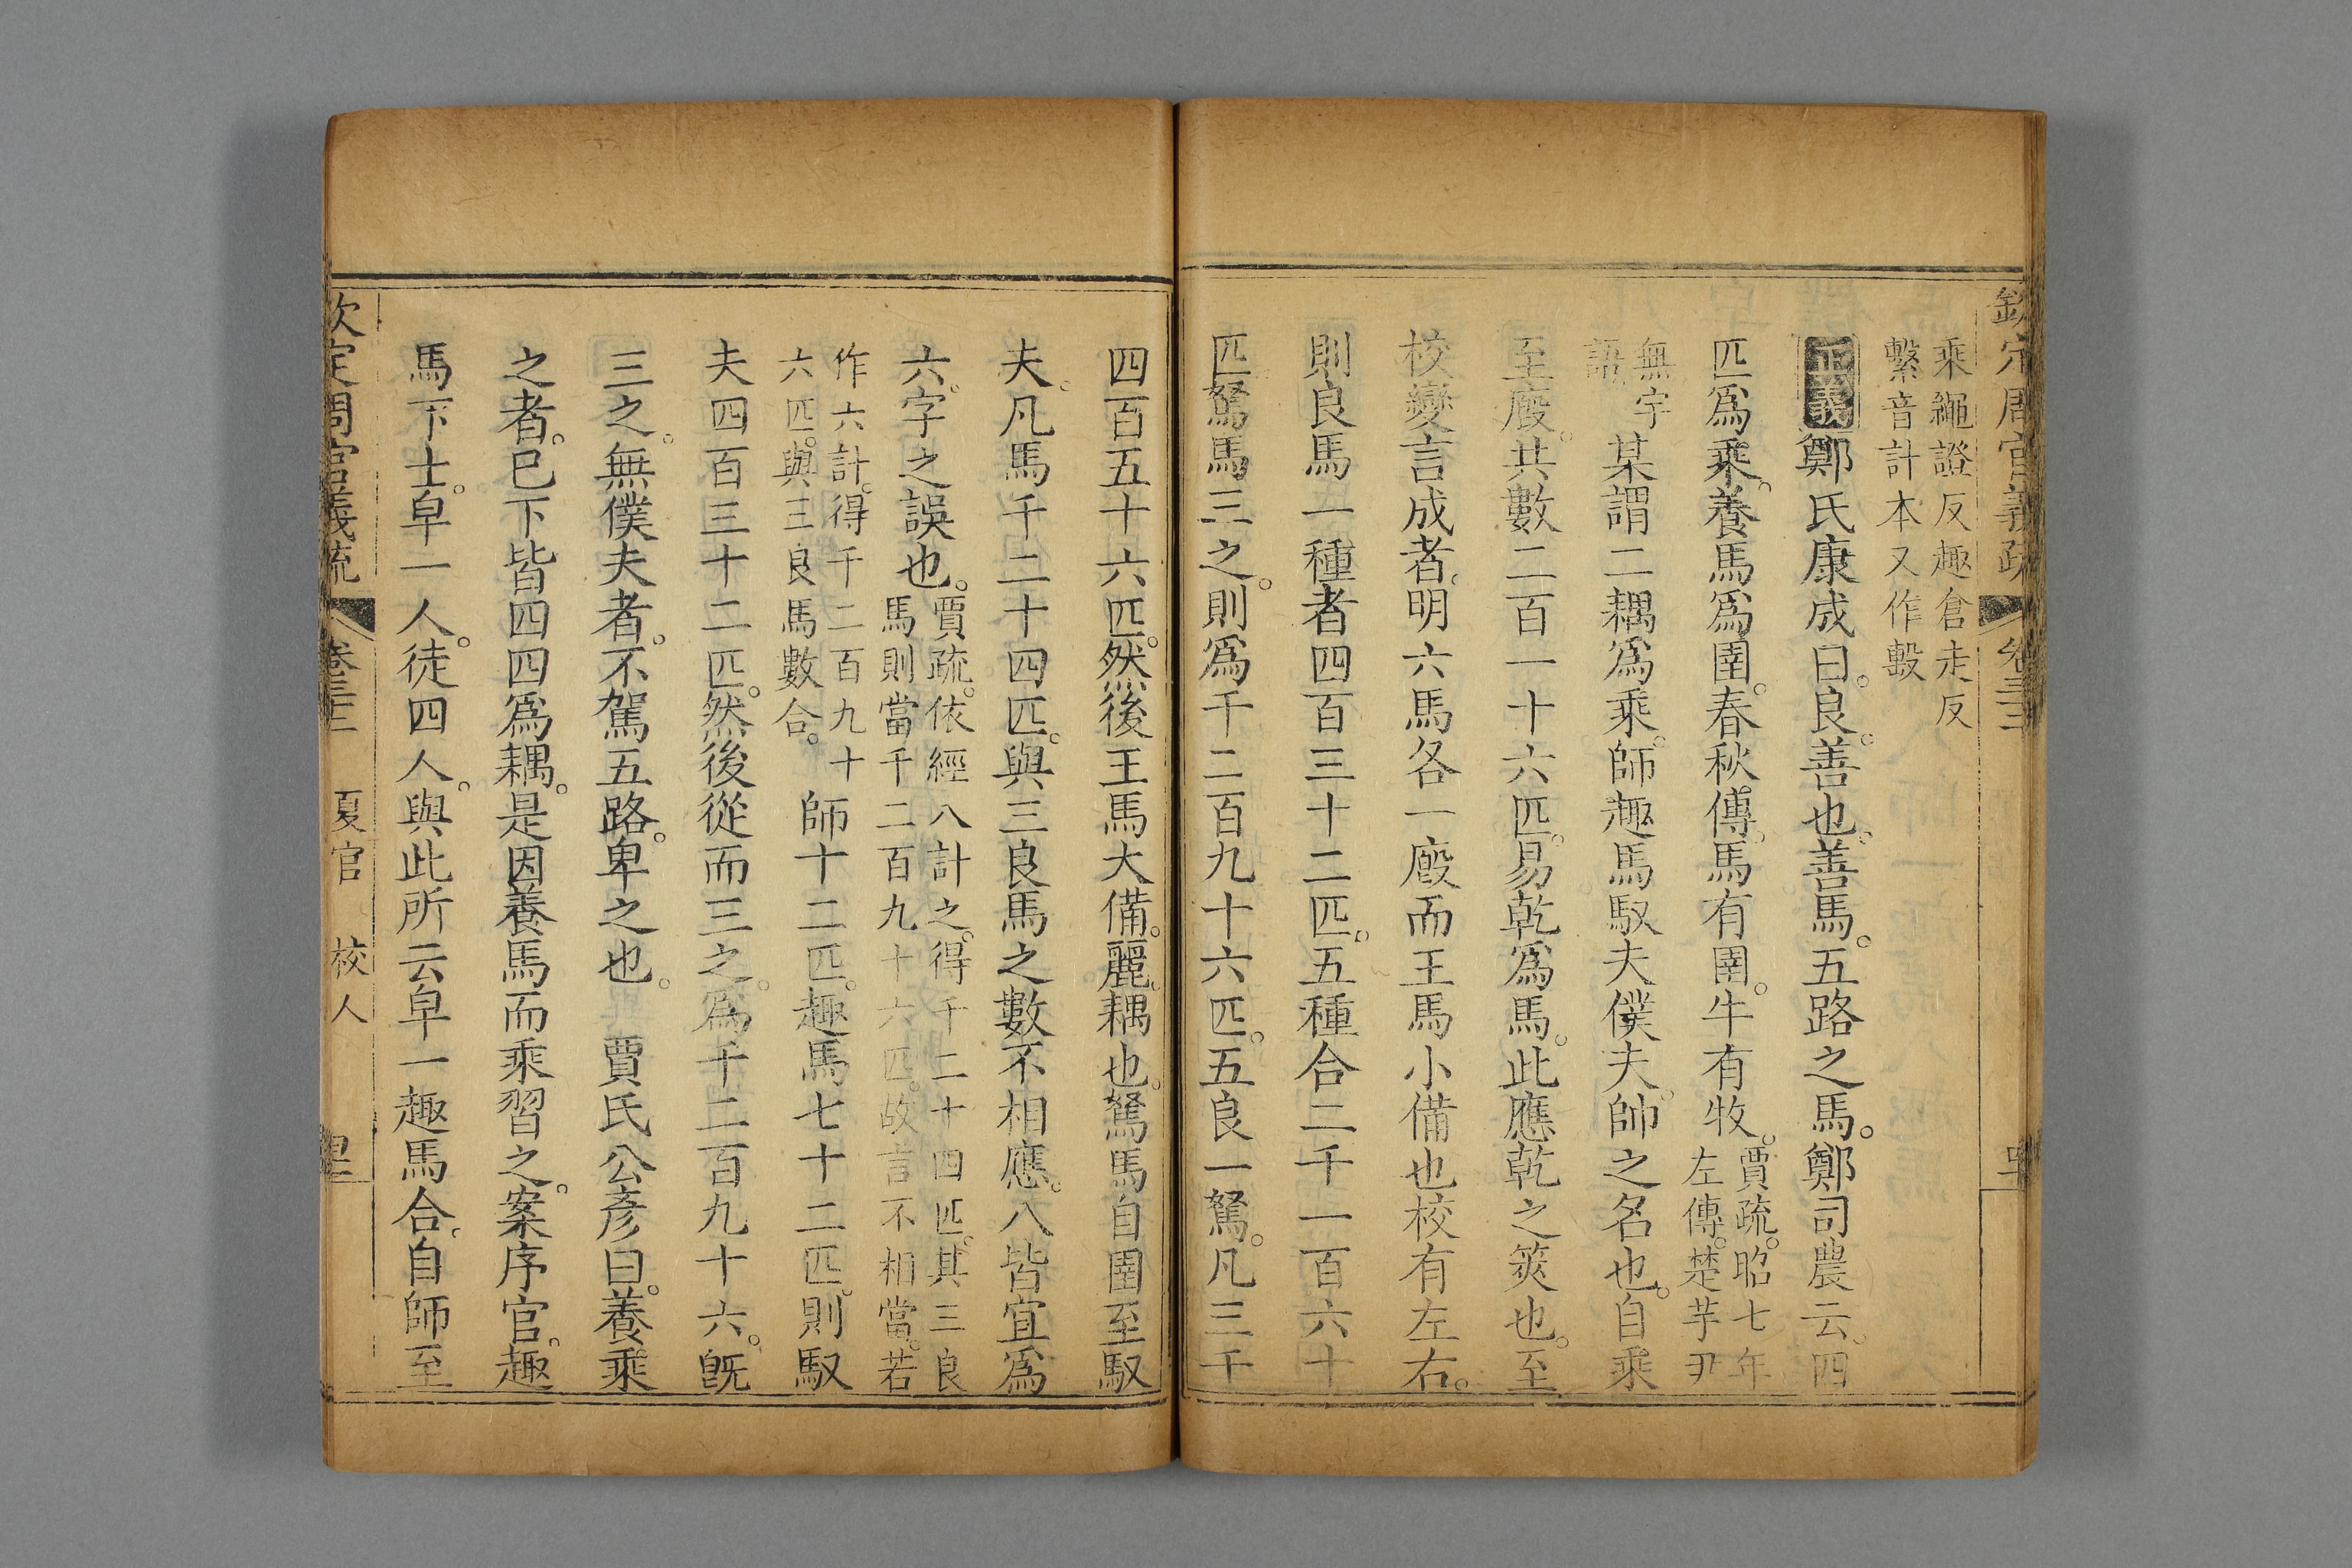 欽定周官義疏 卷三十三
乘繩證反趣倉走反
繫音計本又作毄
正義鄭氏康成曰。良。善也。善馬。五路之馬。鄭司農云。四
匹爲乘。養馬爲圉。春秋傳。馬有圉。牛有牧。
賈疏。昭七年
左傳。楚芋尹
無宇
語。
某謂二耦爲乘。師趣馬馭夫僕夫。帥之名也。自乘
至廄。共數二百一十六匹。易乾爲馬。此應乾之筴也。至
校變言成者。明六馬各一廄而王馬小備也校有左右。
則良馬一種者四百三十二匹。五種合二千一百六十
匹駑馬三之。則爲千二百九十六匹。五良一駑。凡三千
四百五十六匹。然後王馬大備。麗。耦也。駑馬自圉至馭
夫。凡馬千二十四匹。與三良馬之數不相應。八皆宜爲
六。字之誤也。
賈疏。依經八計之。得千二十四匹。其三良
馬則當千二百九十六匹。故言不相當。若
作六計。得千二百九十
六匹。與三良馬數合。
師十二匹。趣馬七十二匹。則馭
夫四百三十二匹。然後從而三之。爲千二百九十六。既
三之。無僕夫者。不駕五路。卑之也。 賈氏公彥曰。養乘
之者。巳下皆四四爲耦。是因養馬而乘習之。案序官。趣
馬下士。皁一人。徒四人。與此所云皁一趣馬合。自師至
欽定周官義疏 卷三十三 夏官 校人